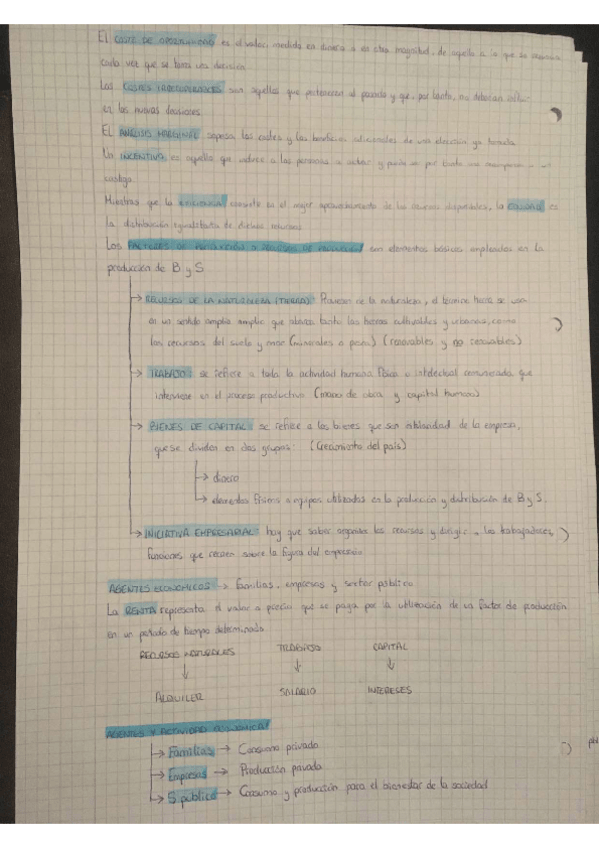 El COSTE DE OPORTUNIDAD es el valor, medido en dinero o en otra magnitud, de aquello a lo que se renuncia
cada vez que se toma una decisión.
Los COSTES IRRECUPERABLES son aquellos que pertenecen al pasado y que, por tanto, no deberían influir
en las nuevas decisiones.
El ANÁLISIS MARGINAL sopesa los costes y los beneficios adicionales de una decisión ya tomada.
Un INCENTIVO es aquello que induce a las personas a actuar y puede ser por tanto una recompensa o un
castigo.
Mientras que la EFICIENCIA consiste en el mejor aprovechamiento de los recursos disponibles, la EQUIDAD es
la distribución igualitaria de dichos recursos.
Los FACTORES DE PRODUCCIÓN o RECURSOS DE PRODUCCIÓN son elementos básicos empleados en la
producción de B y S
→ RECURSOS DE LA NATURALEZA (TIERRA): Provienen de la naturaleza, el término tierra se usa
en un sentido amplio amplio que abarca tanto las tierras cultivables y urbanas, como
los recursos del suelo y mar (minerales o pesca) (renovables y no renovables)
→ TRABAJO: se refiere a toda la actividad humana física o intelectual remunerada, que
interviene en el proceso productivo (mano de obra y capital humano)
→ BIENES DE CAPITAL: se refiere a los bienes que son propiedad de la empresa,
que se dividen en dos grupos: (Crecimiento del país)
→ dinero
→ elementos físicos o equipos utilizados en la producción y distribución de B y S.
→ INICIATIVA EMPRESARIAL: hay que saber organizar los recursos y dirigir a los trabajadores,
funciones que recaen sobre la figura del empresario
AGENTES ECONÓMICOS → Familias, empresas y sector público
La RENTA representa el valor o precio que se paga por la utilización de un factor de producción
en un periodo de tiempo determinado
RECURSOS NATURALES TRABAJO CAPITAL
↓ ↓ ↓
ALQUILER SALARIO INTERESES
AGENTES Y ACTIVIDAD ECONÓMICA
→ Familias → Consumo privado
→ Empresas → Producción privada
→ S. público → Consumo y producción para el bienestar de la sociedad